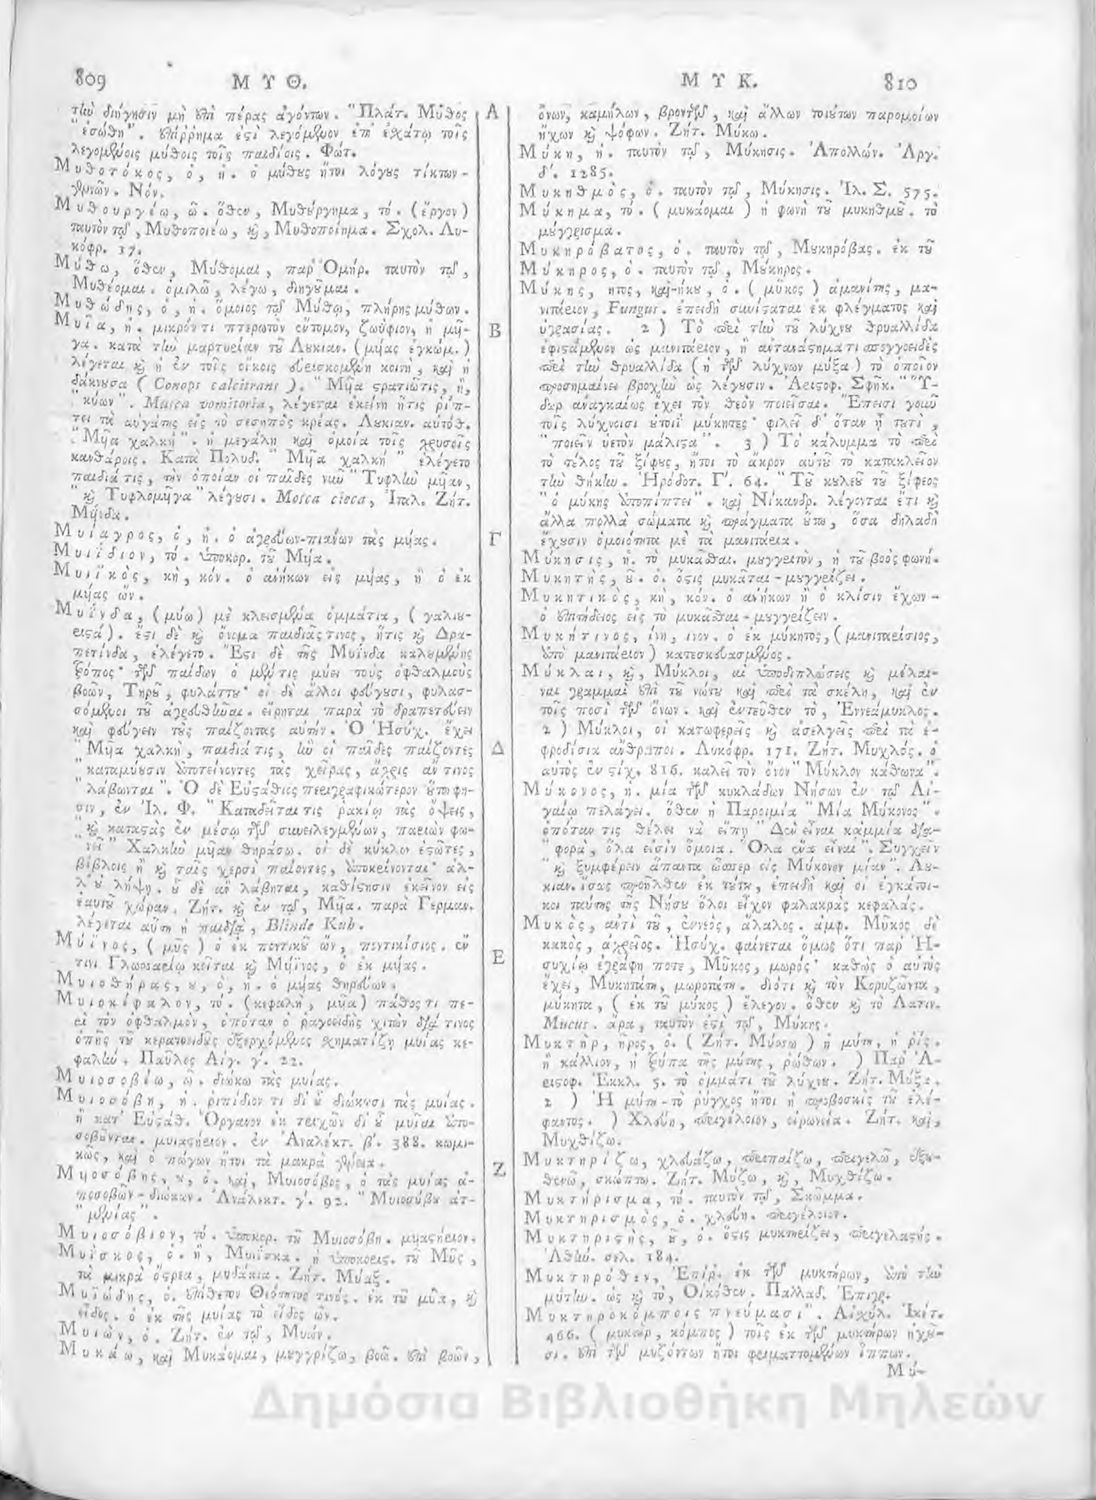 809 ΜΥΘ.
τὴν διήγησιν μὴ ἐπὶ πέρας ἀγόντων. "Πλάτ. Μῦθος
"ἐσώθη". ἐπίῤῥημα ἐςὶ λεγόμενον ἐπ' ἐσχάτῳ τοῖς
λεγομένοις μύθοις τοῖς παιδίοις. Φώτ.
Μυθοτόκος, ὁ, ἡ. ὁ μύθους ἤτοι λόγους τίκτων-
γεννῶν. Νόν.
Μυθουργέω, ῶ. ὅθεν, Μυθούργημα, τό. (ἔργον)
ταυτὸν τῷ, Μυθοποιέω, καὶ, Μυθοποίημα. Σχολ. Λυ-
κόφρ. 17.
Μύθω, ὅθεν, Μύθομαι, παρ' Ὁμήρ. ταυτὸν τῷ,
Μυθέομαι. ὁμιλῶ, λέγω, διηγοῦμαι.
Μυθώδης, ὁ, ἡ. ὅμοιος τῷ Μύθῳ, πλήρης μύθων.
Μυῖα, ἡ. μικρόν τι πτερωτὸν ἔντομον, ζωΰφιον, ἡ μῦι-
γα. κατὰ τὴν μαρτυρίαν τοῦ Λουκιαν. (μυίας ἐγκώμ.)
λέγεται καὶ ἡ ἐν τοῖς οἴκοις εὑρισκομένη κοινὴ, καὶ ἡ
δάκνουσα (Conops calcitrans). "Μυῖα ςρατιῶτις, ἢ,
"κύων". Musca vomitoria, λέγεται ἐκείνη ἥτις ῥίπ-
τει τὰ αὐγάτης εἰς τὸ σεσηπὸς κρέας. Λουκιαν. αὐτόθ.
"Μυῖα χαλκῆ". ἡ μεγάλη καὶ ὁμοία τοῖς χρυσοῖς
κανθάροις. Κατὰ Πολυδ. "Μυῖα χαλκῆ" ἐλέγετο
παιδιά τις, τὴν ὁποίαν οἱ παῖδες νῦν "Τυφλὴν μυῖαν,
"καὶ Τυφλομύιγα" λέγουσι. Mosca cieca, Ἰταλ. Ζήτ.
Μυΐνδα.
Μυίαγρος, ὁ, ἡ. ὁ ἀγρεύων-πιάνων τὰς μυίας.
Μυιίδιον, τό. ὑποκορ. τοῦ Μυῖα.
Μυιϊκὸς, κὴ, κόν. ὁ ἀνήκων εἰς μυίας, ἢ ὁ ἐκ
μυίας ὤν.
Μυΐνδα, (μύω) μὲ κλεισμένα ὀμμάτια, (γαλιυ-
ειςά). ἔςι δὲ καὶ ὄνομα παιδιᾶς τινος, ἥτις καὶ Δρα-
πετίνδα, ἐλέγετο. Ἔςι δὲ τῆς Μυΐνδα καλουμένης
τρόπος· τῶν παίδων ὁ μέν τις μύει τοὺς ὀφθαλμοὺς
βοῶν, Τηρῶ, φυλάττου· οἱ δὲ ἄλλοι φεύγουσι, φυλασ-
σόμενοι τοῦ ἀγρευθῆναι. εἴρηται παρὰ τὸ δραπετεύειν
καὶ φεύγειν τοὺς παίζοντας αὐτήν. Ὁ Ἡσύχ. ἔχει
"Μυῖα χαλκῆ, παιδιά τις, ἣν οἱ παῖδες παίζοντες
"καταμύουσιν ἀποτείνοντες τὰς χεῖρας, ἄχρις ἄν τινος
"λάβωνται". Ὁ δὲ Εὐςάθιος περιγραφικώτερον οὕτω φη-
σιν, ἐν Ἰλ. Φ. "Καταδεῖταί τις ῥακίῳ τὰς ὄψεις,
"καὶ καταςὰς ἐν μέσῳ τῶν συνειλεγμένων, παριὼν φω-
νεῖ" Χαλκῆν μυῖαν θηράσω. οἱ δὲ κύκλῳ ἑςῶτες,
βίβλοις ἢ καὶ ταῖς χερσὶ παίοντες, ἀποκρίνονται· ἀλ-
λ' οὐ λήψῃ. οὗ δὲ ἂν λάβηται, καθίςησιν ἐκεῖνον εἰς
ἑαυτοῦ χώραν. Ζήτ. καὶ ἐν τῷ, Μυῖα. παρὰ Γερμαν.
λέγεται αὕτη ἡ παιδιὰ, Blinde Kuh.
Μύϊνος, (μῦς) ὁ ἐκ ποντικοῦ ὢν, ποντικίσιος. ἔν
τινι Γλωσσαρίῳ κεῖται καὶ Μύϊνος, ὁ ἐκ μυίας.
Μυιοθήρας, ου, ὁ, ἡ. ὁ μυίας θηρεύων.
Μυιοκέφαλον, τό. (κεφαλὴ, μυῖα) πάθος τι πε-
ρὶ τὸν ὀφθαλμὸν, ὁπόταν ὁ ῥαγοειδὴς χιτὼν διά τινος
ὀπῆς τοῦ κερατοειδοῦς ἐξερχόμενος σχηματίζῃ μυίας κε-
φαλήν. Παῦλος Αἰγ. γ'. 22.
Μυιοσοβέω, ῶ. διώκω τὰς μυίας.
Μυιοσόβη, ἡ. ῥιπίδιον τι δι' οὗ διώκουσι τὰς μυίας.
ἢ κατ' Εὐςάθ. Ὄργανον ἐκ τριχῶν δι' οὗ μυῖαι ἀπο-
σοβοῦνται. μυιαςήριον. ἐν Ἀναλέκτ. β'. 388. κωμι-
κῶς, καὶ ὁ πώγων ἤτοι τὰ μακρὰ γένεια.
Μυιοσόβης, ου, ὁ. καὶ, Μυιοσόβος, ὁ τὰς μυίας ἀ-
ποσοβῶν-διώκων. Ἀναλεκτ. γ'. 92.
Μυιοσόβιον, τό. ὑποκορ. τοῦ Μυιοσόβη. μυιαςήριον.
Μυΐσκος, ὁ. ἢ, Μυιΐσκα. ἡ ὑποκορις. τοῦ Μῦς,
τὰ μικρὰ ὄςρεα, μυδάκια. Ζήτ. Μύαξ.
Μυιώδης, ὁ. ἐπίθετον Θεότητός τινός. ἐκ τοῦ μῦα, καὶ
εἶδος. ὁ ἐκ τῆς μυίας τὸ εἶδος ὤν.
Μυιὼν, ὁ. Ζήτ. ἐν τῷ, Μυών.
Μυκάω, καὶ Μυκάομαι, μουγγρίζω, βοῶ. ἐπὶ βοῶν,
Α
Β
Γ
Δ
Ε
Ζ
ΜΥΚ. 810
ὄνων, καμήλων, βροντῶν, καὶ ἄλλων τοιούτων παρομοίων
ἤχων καὶ ψόφων. Ζήτ. Μύκω.
Μύκη, ἡ. ταυτὸν τῷ, Μύκησις. Ἀπολλών. Ἀργ.
δ'. 1285.
Μυκηθμὸς, ὁ. ταυτὸν τῷ, Μύκησις. Ἰλ. Σ. 575.
Μύκημα, τό. (μυκάομαι) ἡ φωνὴ τοῦ μυκηθμοῦ. τὸ
μούγγρισμα.
Μυκηρόβατος, ὁ. ταυτὸν τῷ, Μουκηρόβας. ἐκ τοῦ
Μύκηρος, ὁ. ταυτὸν τῷ, Μούκηρος.
Μύκης, ητος, καὶ-ήκου, ὁ. (μῦκος) ἀμανίτης, μα-
νιτάριον, Fungus. ἐπειδὴ συνίςαται ἐκ φλέγματος καὶ
ὑγρασίας. 2) Τὸ περὶ τὴν τοῦ λύχνου θρυαλλίδα
ἐφιςάμενον ὡς μανιτάριον, ἢ αὐτανάςημά τι σπογγοειδὲς
περὶ τὴν θρυαλλίδα (ἡ τῶν λύχνων μύξα) τὸ ὁποῖον
προσημαίνει βροχὴν ὡς λέγουσιν. Ἀριςοφ. Σφῆκ. "Ὕ-
δωρ ἀναγκαίως ἔχει τὸν θεὸν ποιῆσαι. Ἔπεισι γοῦν
τοῖς λύχνοισι οὑτοιῒ μύκητες· φιλεῖ δ' ὅταν ᾖ τουτὶ,
"ποιεῖν ὑετὸν μάλιςα". 3) Τὸ κάλυμμα τὸ περὶ
τὸ τέλος τοῦ ξίφους, ἤτοι τὸ ἄκρον αὐτοῦ τὸ κατακλεῖον
τὴν θήκην. Ἡρόδοτ. Γ'. 64. "Τοῦ κουλεοῦ τοῦ ξίφεος
"ὁ μύκης ἀποπίπτει". καὶ Νίκανδρ. λέγονται ἔτι καὶ
ἄλλα πολλὰ σώματα καὶ πράγματα οὕτω, ὅσα δηλαδὴ
ἔχουσιν ὁμοιότητα μὲ τὰ μανιτάρια.
Μύκησις, ἡ. τὸ μυκᾶσθαι. μουγγριτὸν, ἡ τοῦ βοὸς φωνή.
Μυκητὴς, οῦ. ὁ. ὅςις μυκᾶται-μουγγρίζει.
Μυκητικὸς, κὴ, κόν. ὁ ἀνήκων ἢ ὁ κλίσιν ἔχων-
ὁ ἐπιτήδειος εἰς τὸ μυκᾶσθαι-μουγγρίζειν.
Μυκήτινος, ίνη, ινον. ὁ ἐκ μύκητος, (μανιταρίσιος,
ἀπὸ μανιτάριον) κατεσκευασμένος.
Μύκλαι, καὶ, Μύκλοι, αἱ ὑποδιπλώσεις καὶ μέλαι-
ναι γραμμαὶ ἐπὶ τοῦ νώτου καὶ περὶ τὰ σκέλη, καὶ ἐν
τοῖς ποσὶ τῶν ὄνων. καὶ ἐντεῦθεν τὸ, Ἐννεάμυκλος.
2) Μύκλοι, οἱ κατωφερεῖς καὶ ἀσελγεῖς περὶ τὰ ἀ-
φροδίσια ἄνθρωποι. Λυκόφρ. 171. Ζήτ. Μυχλός. ὁ
αὐτὸς ἐν ςίχ. 816. καλεῖ τὸν ὄνον "Μύκλον κάνθωνα".
Μύκονος, ἡ. μία τῶν κυκλάδων Νήσων ἐν τῷ Αἰ-
γαίῳ πελάγει. ὅθεν ἡ Παροιμία "Μία Μύκονος".
ὁπόταν τις θέλει νὰ εἴπῃ "Δὲν εἶναι καμμία δια-
"φορὰ, ὅλα εἰσὶν ὅμοια. "Ὅλα ἕνα εἶναι". Συγχεῖν
"καὶ ξυμφέρειν ἅπαντα ὥσπερ εἰς Μύκονον μίαν". Λου-
κιαν. ἴσως προῆλθεν ἐκ τούτου, ἐπειδὴ καὶ οἱ ἐγκάτοι-
κοι ταύτης τῆς Νήσου ὅλοι εἶχον φαλακρὰς κεφαλάς.
Μυκὸς, ἀντὶ τοῦ, ἐννεὸς, ἄλαλος. ἀμφ. Μῦκος δὲ
κακὸς, ἀχρεῖος. Ἡσύχ. φαίνεται ὅμως ὅτι παρ' Ἡ-
συχίῳ ἐγράφη ποτε, Μῦκος, μωρός· καθὼς ὁ αὐτὸς
ἔχει, Μυκηπάτη, μωροπάτη. διότι καὶ τὸν Κορυζῶντα,
μύκητα, (ἐκ τοῦ μύκος) ἔλεγον. ὅθεν καὶ τὸ Λατιν.
Mucus. ἄρα, ταυτὸν ἐςὶ τῷ, Μύκης.
Μυκτὴρ, ῆρος, ὁ. (Ζήτ. Μύσσω) ἡ μύτη, ἡ ῥίς.
ἢ κάλλιον, ἡ τρύπα τῆς μύτης, ῥώθων. ) Παρ' Ἀ-
ριςοφ. Ἐκκλ. 5. τὸ ὀμμάτι τοῦ λύχνου. Ζήτ. Μύξα.
2) Ἡ μύτη-τὸ ῥύγχος ἤτοι ἡ προβοσκὶς τοῦ ἐλέ-
φαντος. ) Χλεύη, περιγέλοιον, εἰρωνεία. Ζήτ. καὶ,
Μυχθίζω.
Μυκτηρίζω, χλευάζω, περιπαίζω, περιγελῶ, ἐξου-
θενῶ, σκώπτω. Ζήτ. Μύζω, καὶ, Μυχθίζω.
Μυκτήρισμα, τό. ταυτὸν τῷ, Σκῶμμα.
Μυκτηρισμὸς, ὁ. χλεύη. περιγέλοιον.
Μυκτηριςὴς, οῦ, ὁ. ὅςις μυκτηρίζει, περιγελαςής.
Ἀθήν. σελ. 184.
Μυκτηρόθεν, Ἐπίρ. ἐκ τῶν μυκτήρων, ἀπὸ τὴν
μύτην. ὡς καὶ τὸ, Οἰκόθεν. Παλλαδ. Ἐπιγρ.
Μυκτηροκόμποις πνεύμασι". Αἰσχύλ. Ἱκέτ.
466. (μυκτὴρ, κόμπος) τοῖς ἐκ τῶν μυκτήρων ἠχοῦ-
σι. ἐπὶ τῶν μυζόντων ἤτοι φριματτομένων ἵππων.
Μυ-
Δημόσια Βιβλιοθήκη Μηλεών